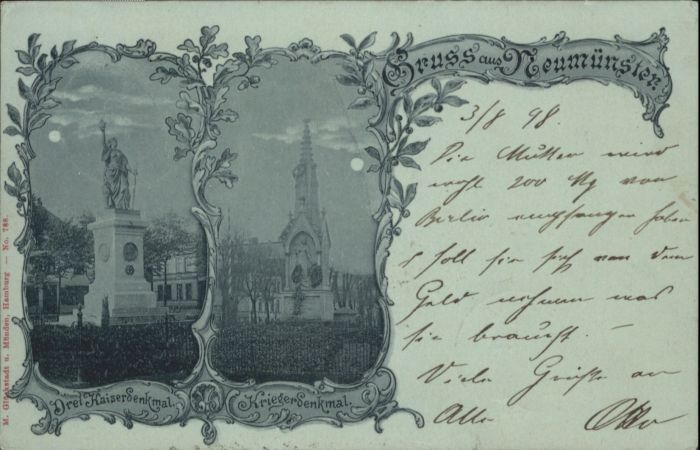 Gruss aus Neumünster.
3/8 98.
Die Mutter wird
wohl 200 Mg von
Berlin empfangen haben
soll sie sich von dem
Geld nehmen was
sie braucht. –
Viele Grüße an
Alle Otto
Drei Kaiserdenkmal.
Kriegerdenkmal.
M. Glückstadt u. Münden, Hamburg — No. 788.